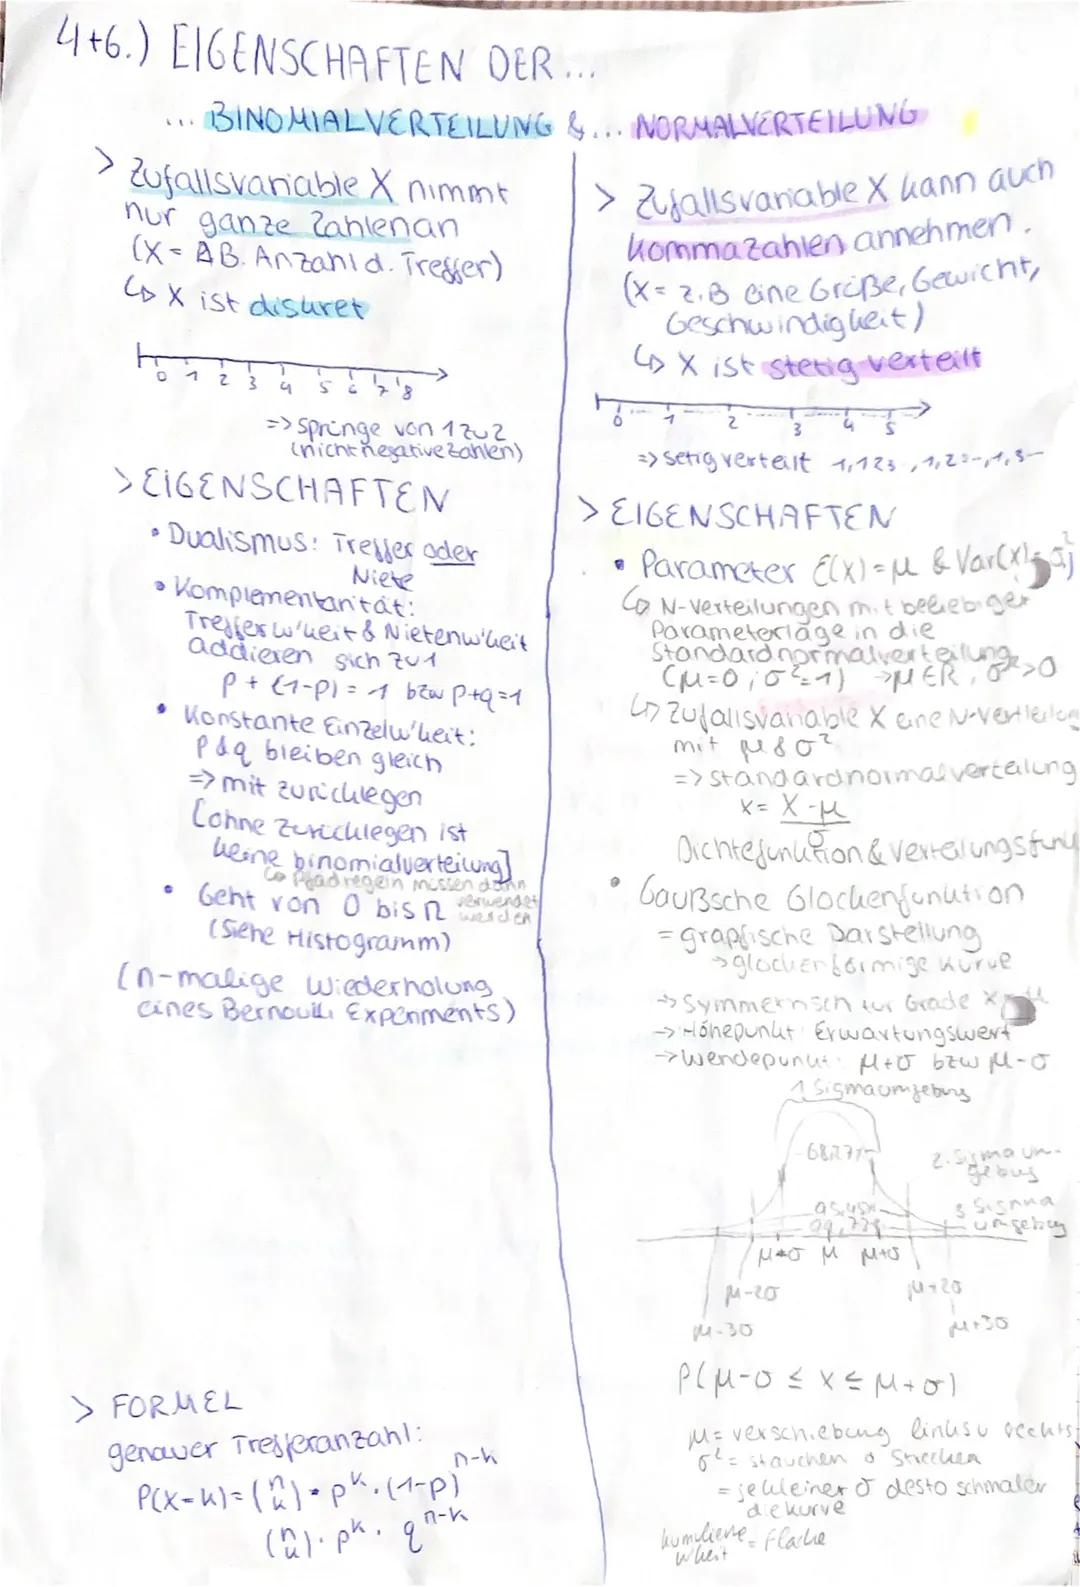 4+6.) EIGENSCHAFTEN DER...
... BINOMIALVERTEILUNG & ... NORMALVERTEILUNG
> Zufallsvariable X nimmt
nur ganze Zahlen an
(X = Anzahl d. Treffer)
↳ X ist diskret
0 1 2 3 4 5 6 7 8
=> Sprünge von 1 zu 2
(nicht negative Zahlen)
> EIGENSCHAFTEN
• Dualismus: Treffer oder
Niete
• Komplementarität:
Trefferw'keit & Nietenw'keit
addieren sich zu 1
p + (1-p) = 1 bzw p+q=1
• Konstante Einzelw'keit:
p & q bleiben gleich
=> mit zurücklegen
[ohne zurücklegen ist
keine binomialverteilung]
↳ Pfadregeln müssen dann
verwendet
werden
• Geht von 0 bis n
(siehe Histogramm)
(n-malige Wiederholung
eines Bernoulli Experiments)
> FORMEL
genauer Trefferanzahl:
P(X=k) = (n k) • p^k • (1-p)^n-k
(n k) • p^k • q^n-k
> Zufallsvariable X kann auch
Kommazahlen annehmen.
(X = z.B eine Größe, Gewicht,
Geschwindigkeit)
↳ X ist stetig verteilt
0 1 2 3 4 5
=> Setig verteilt 1,123
> EIGENSCHAFTEN
• Parameter E(X) = μ & Var(X)
↳ N-Verteilungen mit beliebiger
Parameterlage in die
Standardnormalverteilung
(μ=0 ; σ²=1) → μ∈R, σ²>0
↳ Zufallsvariable X eine N-Verteilung
mit μ & σ²
=> standardnormalverteilung
x = X-μ / σ
Dichtefunktion & Verteilungsfunk
• Gaußsche Glockenfunktion
= grapfische Darstellung
→ glockenförmige Kurve
→ Symmetrisch zur Grade
→ Höhepunkt: Erwartungswert
→ Wendepunkt: μ+σ bzw μ-σ
1. Sigmaumgebung
68,27%
2. Sigmaum-
gebug
95,45%
3 Sigma
umgebug
99,73%
μ-σ μ μ+σ
μ-2σ μ+2σ
μ-3σ μ+3σ
P(μ-σ ≤ X ≤ μ+σ)
μ = verschiebung links u rechts
σ² = stauchen o Strecken
= je kleiner σ desto schmaler
die kurve
kumulierte
w'keit = Fläche